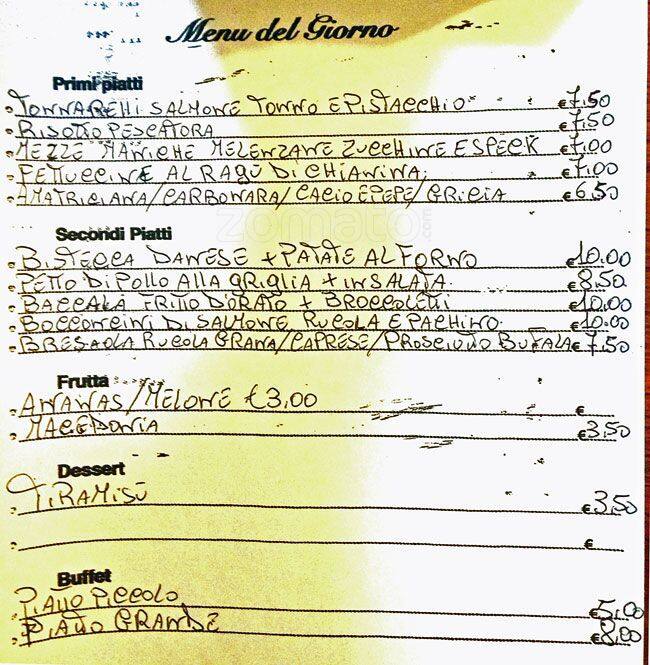 Menu del Giorno
Primi piatti
TONNARELLI SALMONE TONNO E PISTACCHIO €7,50
RISOTTO PESCATORA €7,50
MEZZE MANICHE MELENZANE ZUCCHINE E SPECK €7,00
FETTUCCINE AL RAGÙ DI CHIANINA €7,00
AMATRICIANA/CARBONARA/CACIO E PEPE/GRICIA €6,50
zomato.com
Secondi Piatti
BISTECCA DANESE + PATATE AL FORNO €10,00
PETTO DI POLLO ALLA GRIGLIA + INSALATA €8,50
BACCALÀ FRITTO DORATO + BROCCOLETTI €10,00
BOCCONCINI DI SALMONE RUCOLA E PACHINO €10,00
BRESAOLA RUCOLA GRANA/CAPRESE/PROSCIUTTO BUFALA €7,50
Frutta
ANANAS/MELONE €3,00 €
MACEDONIA €3,50
Dessert
TIRAMISÙ €3,50
€
Buffet
PIATTO PICCOLO €5,00
PIATTO GRANDE €8,00